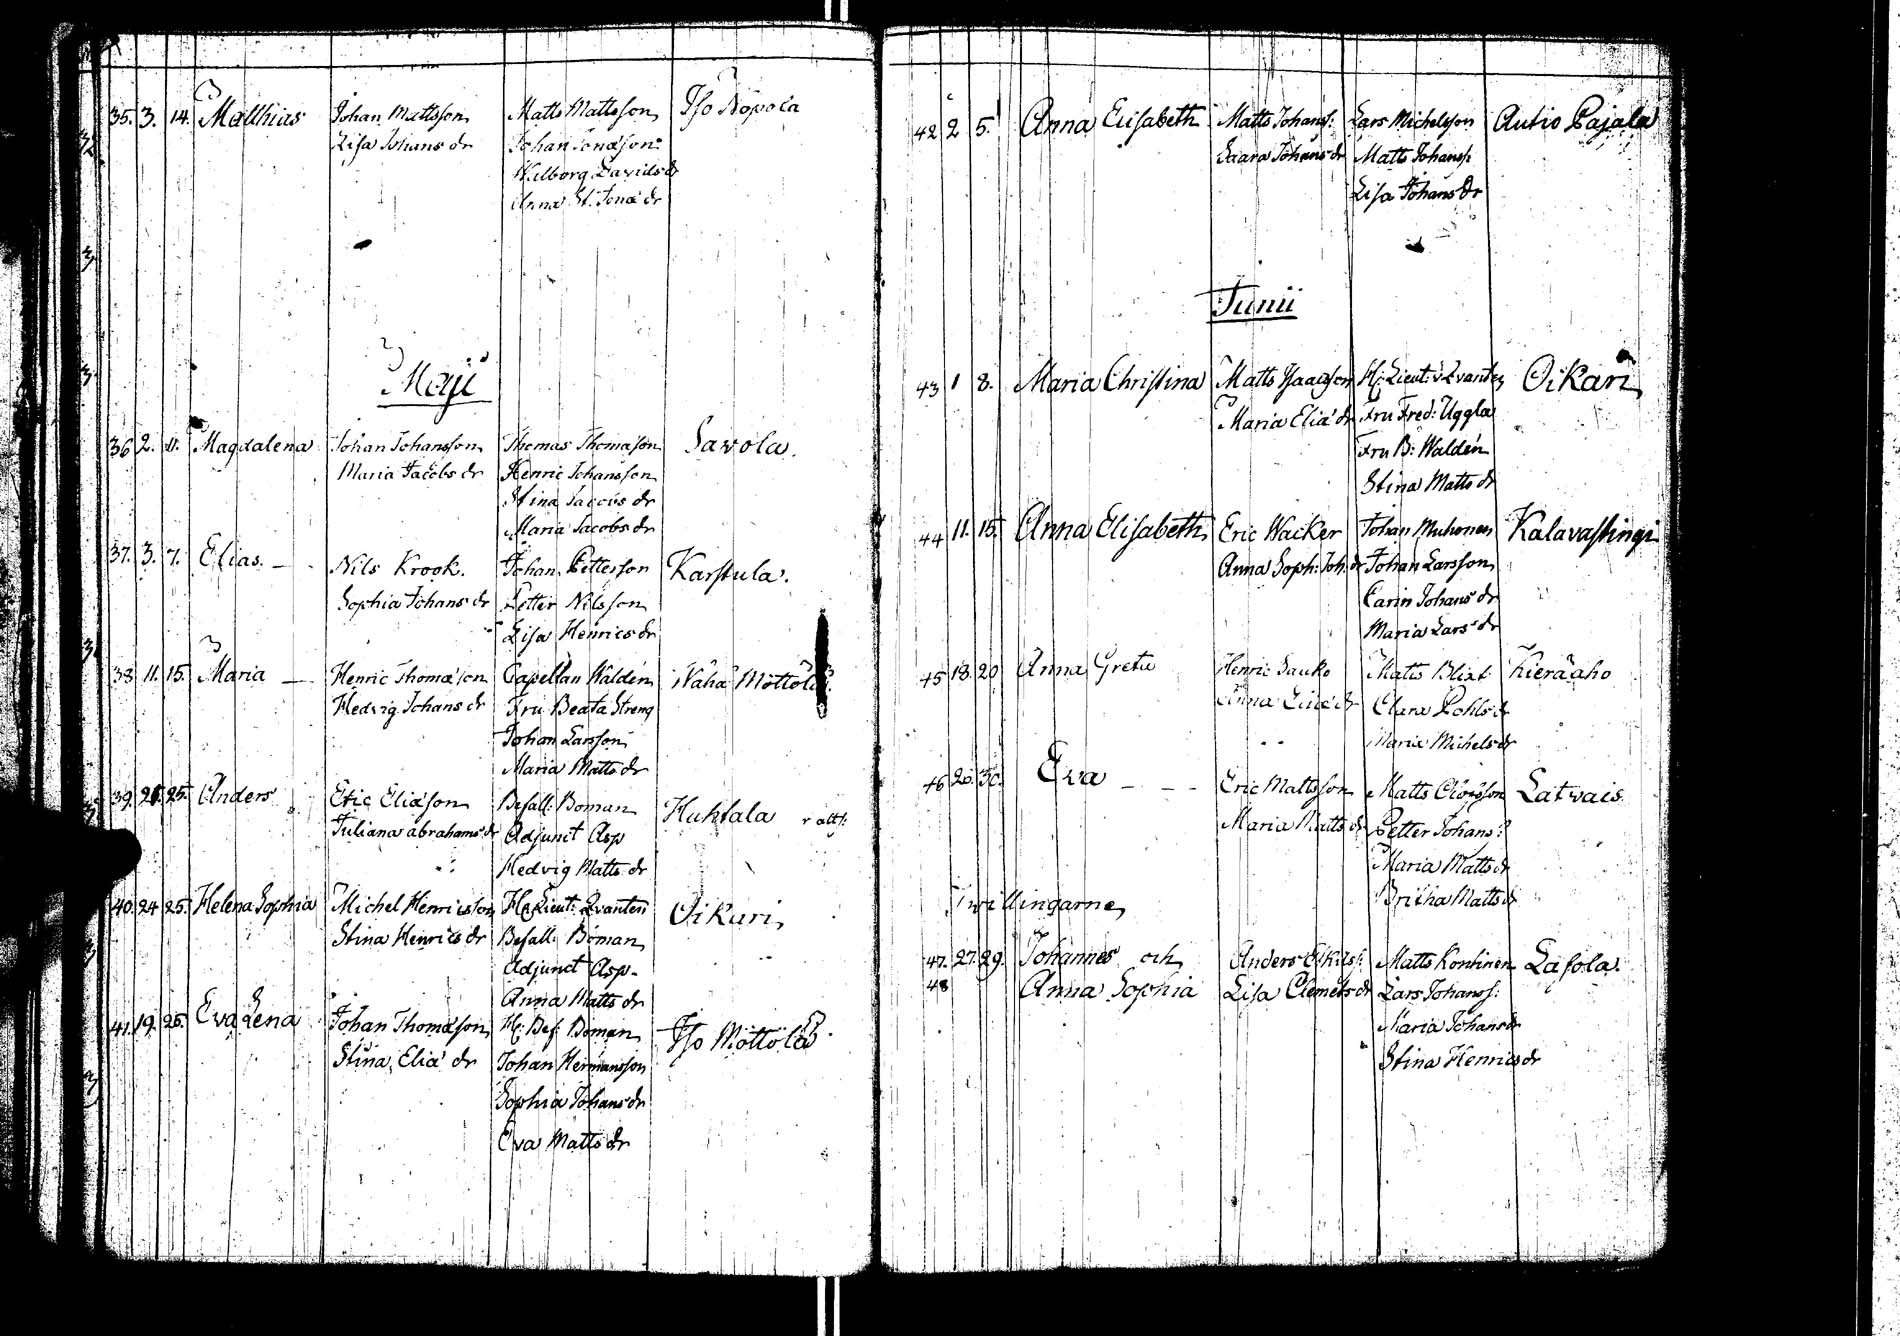 35. 3. 14. Matthias Johan Mattsson Matts Mattsson Iso Nopola
Lisa Johans dr Johan Jonasson
Walborg Davids dr
Anna St. Jona dr
Maji
36 2. 11. Magdalena Johan Johansson Thomas Thomason Savola.
Maria Jacobs dr Henric Johansson
Stina Jacobs dr
Maria Jacobs dr
37. 3. 7. Elias. — Nils Krook. Johan Pettersson Karstula.
Sophia Johans dr Petter Nilsson
Lisa Henrics dr
38 11. 15. Maria — Henric Thomason Capellan Waldén Waha Möttölä.
Hedvig Johans dr Fru Beata Streng
Johan Larsson
Maria Matts dr
39. 21. 25. Anders Eric Eliasson Befall: Boman Huhtala
Juliana abrahams dr Adjunct Asp
Hedvig Matts dr
40. 24 25. Helena Sophia Michel Henricsson H: Lieut: Qvanten Oikari
Stina Henrics dr Befall: Boman
Adjunct Asp.
Anna Matts dr
41. 19. 26. Eva Lena Johan Thomason H: Bef: Boman Iso Möttölä.
Stina Elia dr Johan Hermansson
Sophia Johans dr
Eva Matts dr
42 2 5. Anna Elisabeth Matts Johans: Lars Michelsson Autio Pajala
Saara Johans dr Matts Johans:
Lisa Johans dr
Junii
43 1 8. Maria Christina Matts Isaacsson H: Lieut: v Qvanten Oikari
Maria Elia dr Fru Fred: Uggla
Fru B: Waldén
Stina Matts dr
44 11. 15. Anna Elisabeth Eric Wacker Johan Muhonen Kalavastingi
Anna Soph: Joh. dr Johan Larsson
Carin Johans dr
Maria Lars dr
45 18. 20 Anna Greta Henric Sauko Matts Blixt Kieräaho
Anna Elia dr Clara Pohls dr
Maria Michels dr
46 26. 30. Eva — — — Eric Mattsson Matts Latvais
Maria Matts dr Petter Johans:
Maria Matts dr
Britha Matts dr
Twillingarne
47. 27. 29. Johannes och Anders Eskils: Matts Kontinen Lasola.
48 Anna Sophia Lisa Clemets dr Lars Johans:
Maria Johans dr
Stina Henrics dr